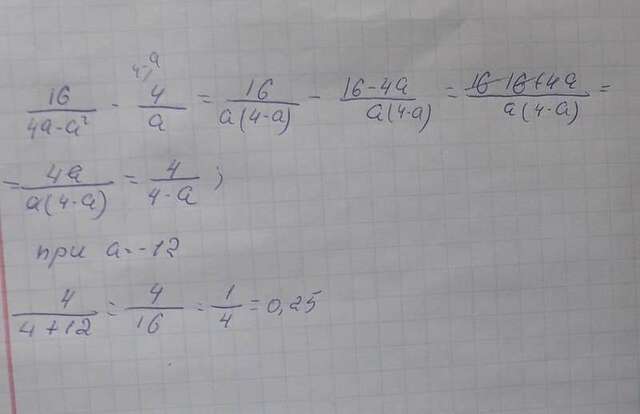 4-a
16/(4a-a²) - 4/a = 16/(a(4-a)) - (16-4a)/(a(4-a)) = (16-16+4a)/(a(4-a)) =
= 4a/(a(4-a)) = 4/(4-a) ;
при a=-12
4/(4+12) = 4/16 = 1/4 = 0,25